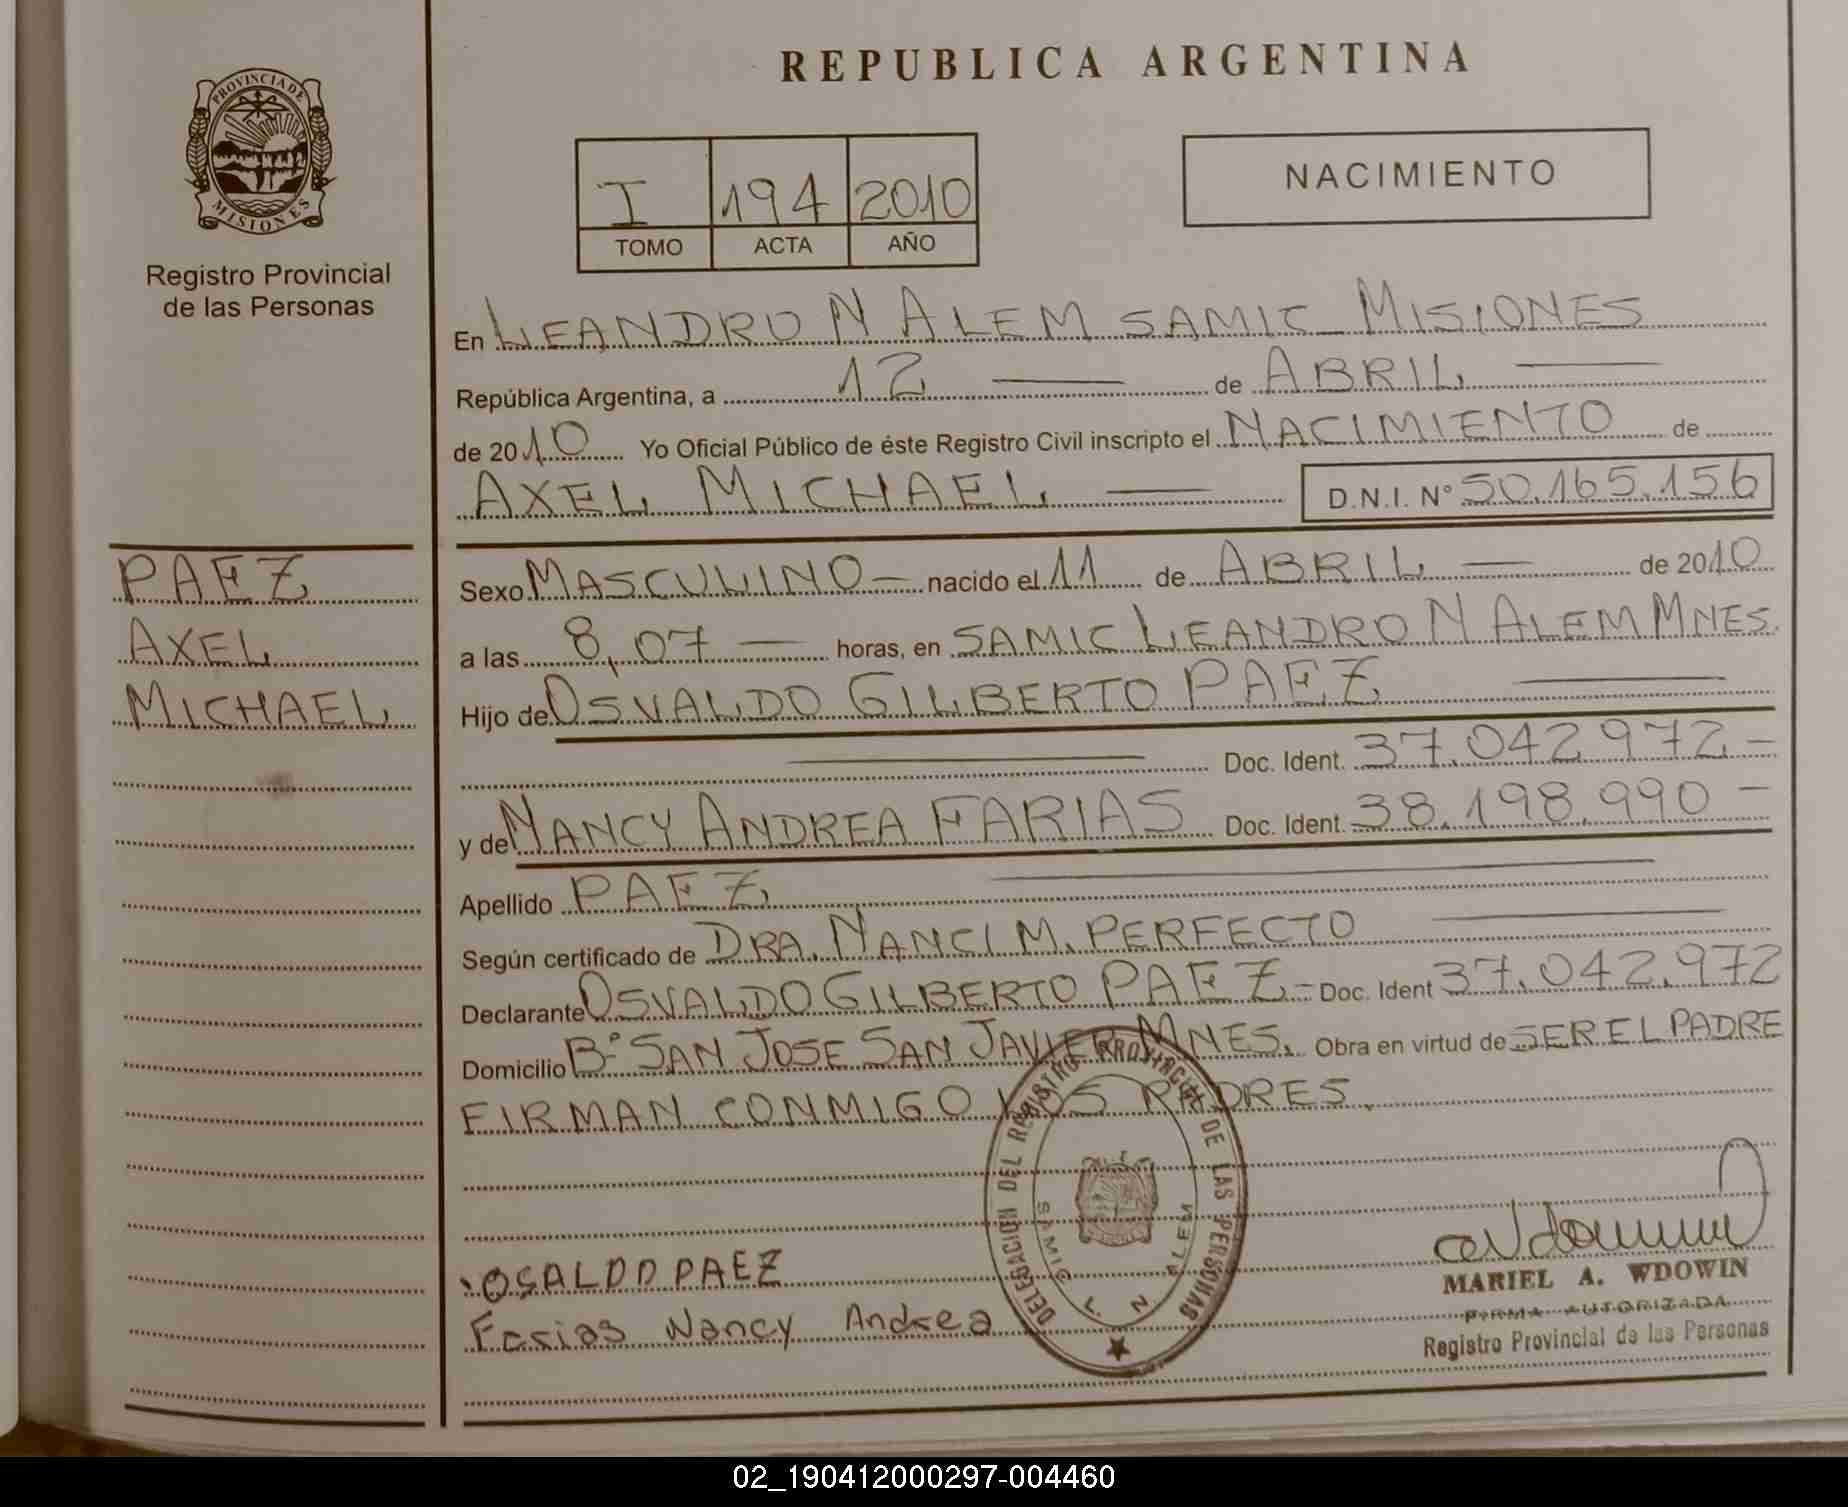 PROVINCIA DE
MISIONES
Registro Provincial
de las Personas
REPUBLICA ARGENTINA
I 194 2010
TOMO ACTA AÑO
NACIMIENTO
En LEANDRO N ALEM SAMIC MISIONES
República Argentina, a 12 de ABRIL
de 2010 Yo Oficial Público de éste Registro Civil inscripto el NACIMIENTO de
AXEL MICHAEL D.N.I. Nº 50.165.156
PAEZ
AXEL
MICHAEL
Sexo MASCULINO nacido el 11 de ABRIL de 2010
a las 8,07 horas, en SAMIC LEANDRO N ALEM MNES.
Hijo de OSVALDO GILBERTO PAEZ
Doc. Ident. 37.042.972
y de NANCY ANDREA FARIAS Doc. Ident. 38.198.990
Apellido PAEZ
Según certificado de DRA. NANCI M. PERFECTO
Declarante OSVALDO GILBERTO PAEZ Doc. Ident 37.042.972
Domicilio Bº SAN JOSE SAN JAVIER MNES. Obra en virtud de SER EL PADRE
FIRMAN CONMIGO LOS PADRES.
DELEGACION DEL REGISTRO PROVINCIAL DE LAS PERSONAS
SAMIC L. N. ALEM
OSALDO PAEZ
Farias Nancy Andrea
MARIEL A. WDOWIN
FIRMA AUTORIZADA
Registro Provincial de las Personas
02_190412000297-004460